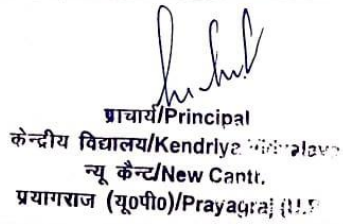 प्राचार्य/Principal
केन्द्रीय विद्यालय/Kendriya
न्यू कैन्ट/New Cantt.
प्रयागराज (यू०पी०)/Prayagraj (U.P.